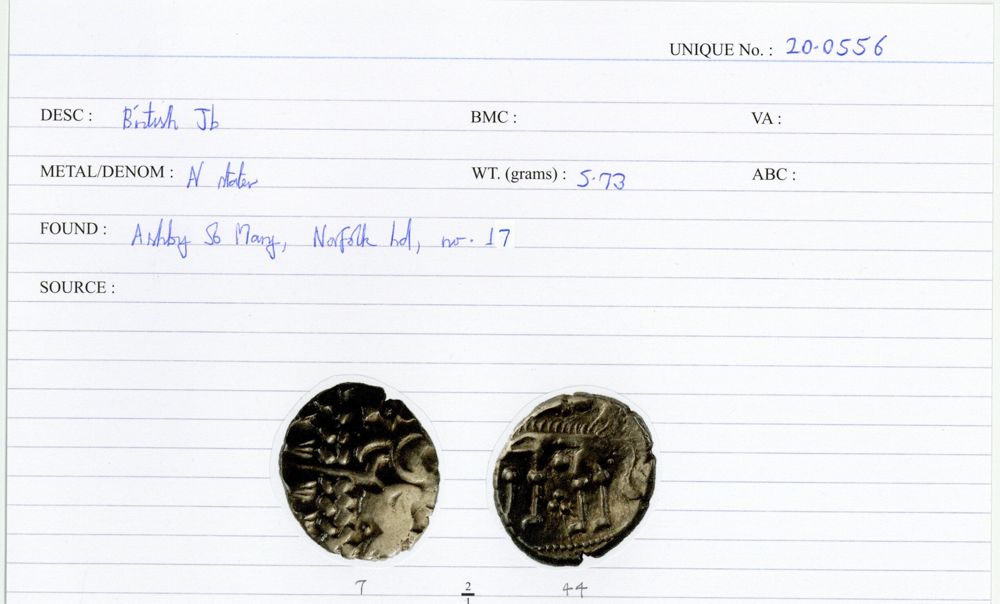 UNIQUE No. : 20-0556
DESC : British Jb BMC : VA :
METAL/DENOM : N stater WT. (grams) : 5.73 ABC :
FOUND : Ashby St Mary, Norfolk hd, no. 17
SOURCE :
7 2/1 44